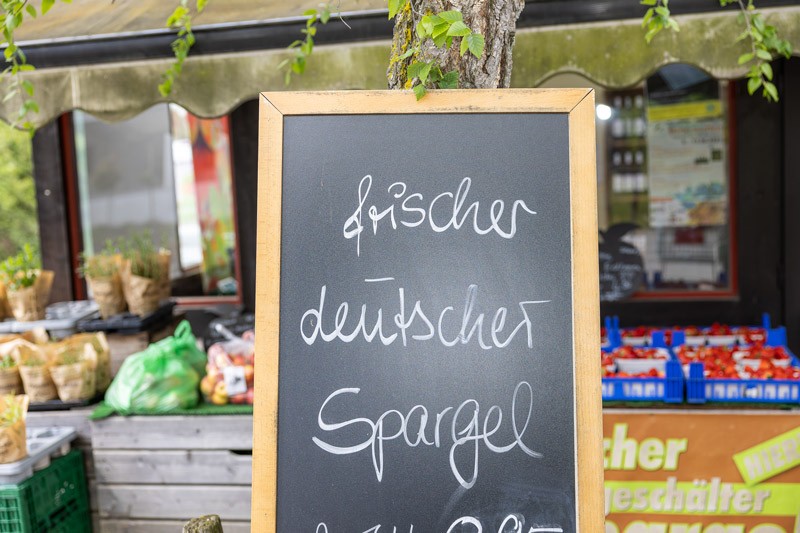 frischer
deutscher
Spargel
cher
geschälter